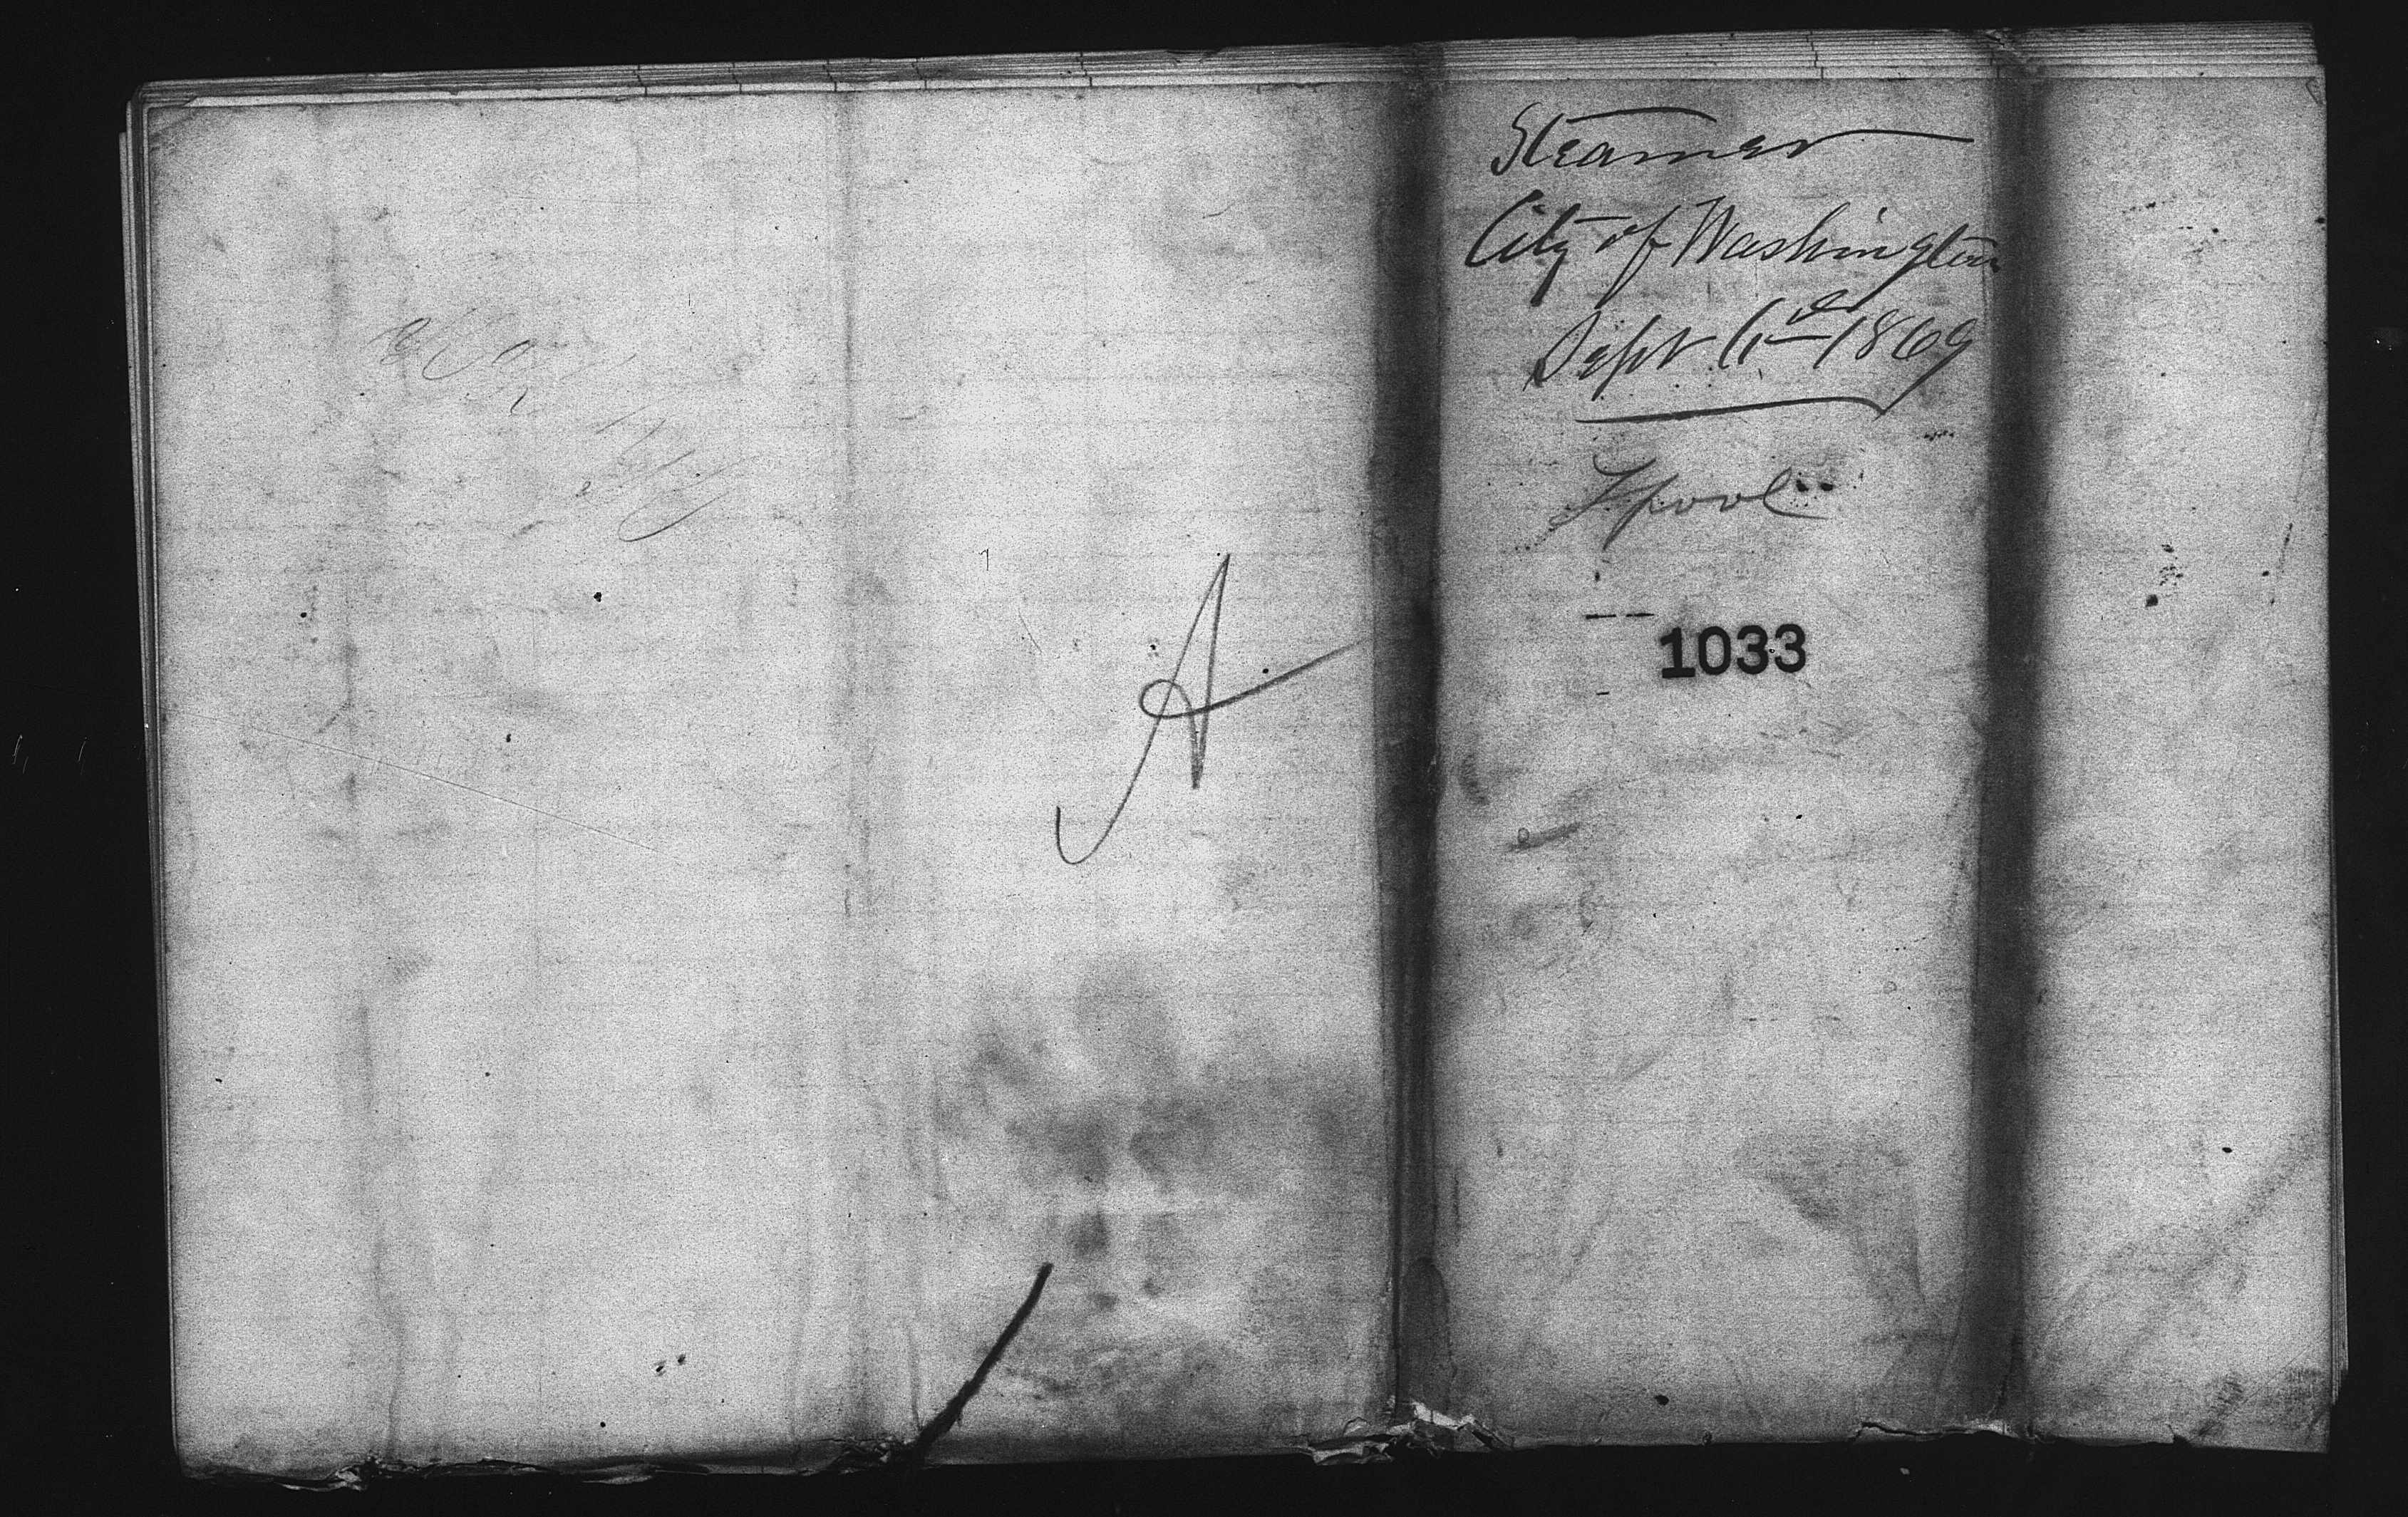 Steamer
City of Washington
Sept 1869
Lpool
1033
A